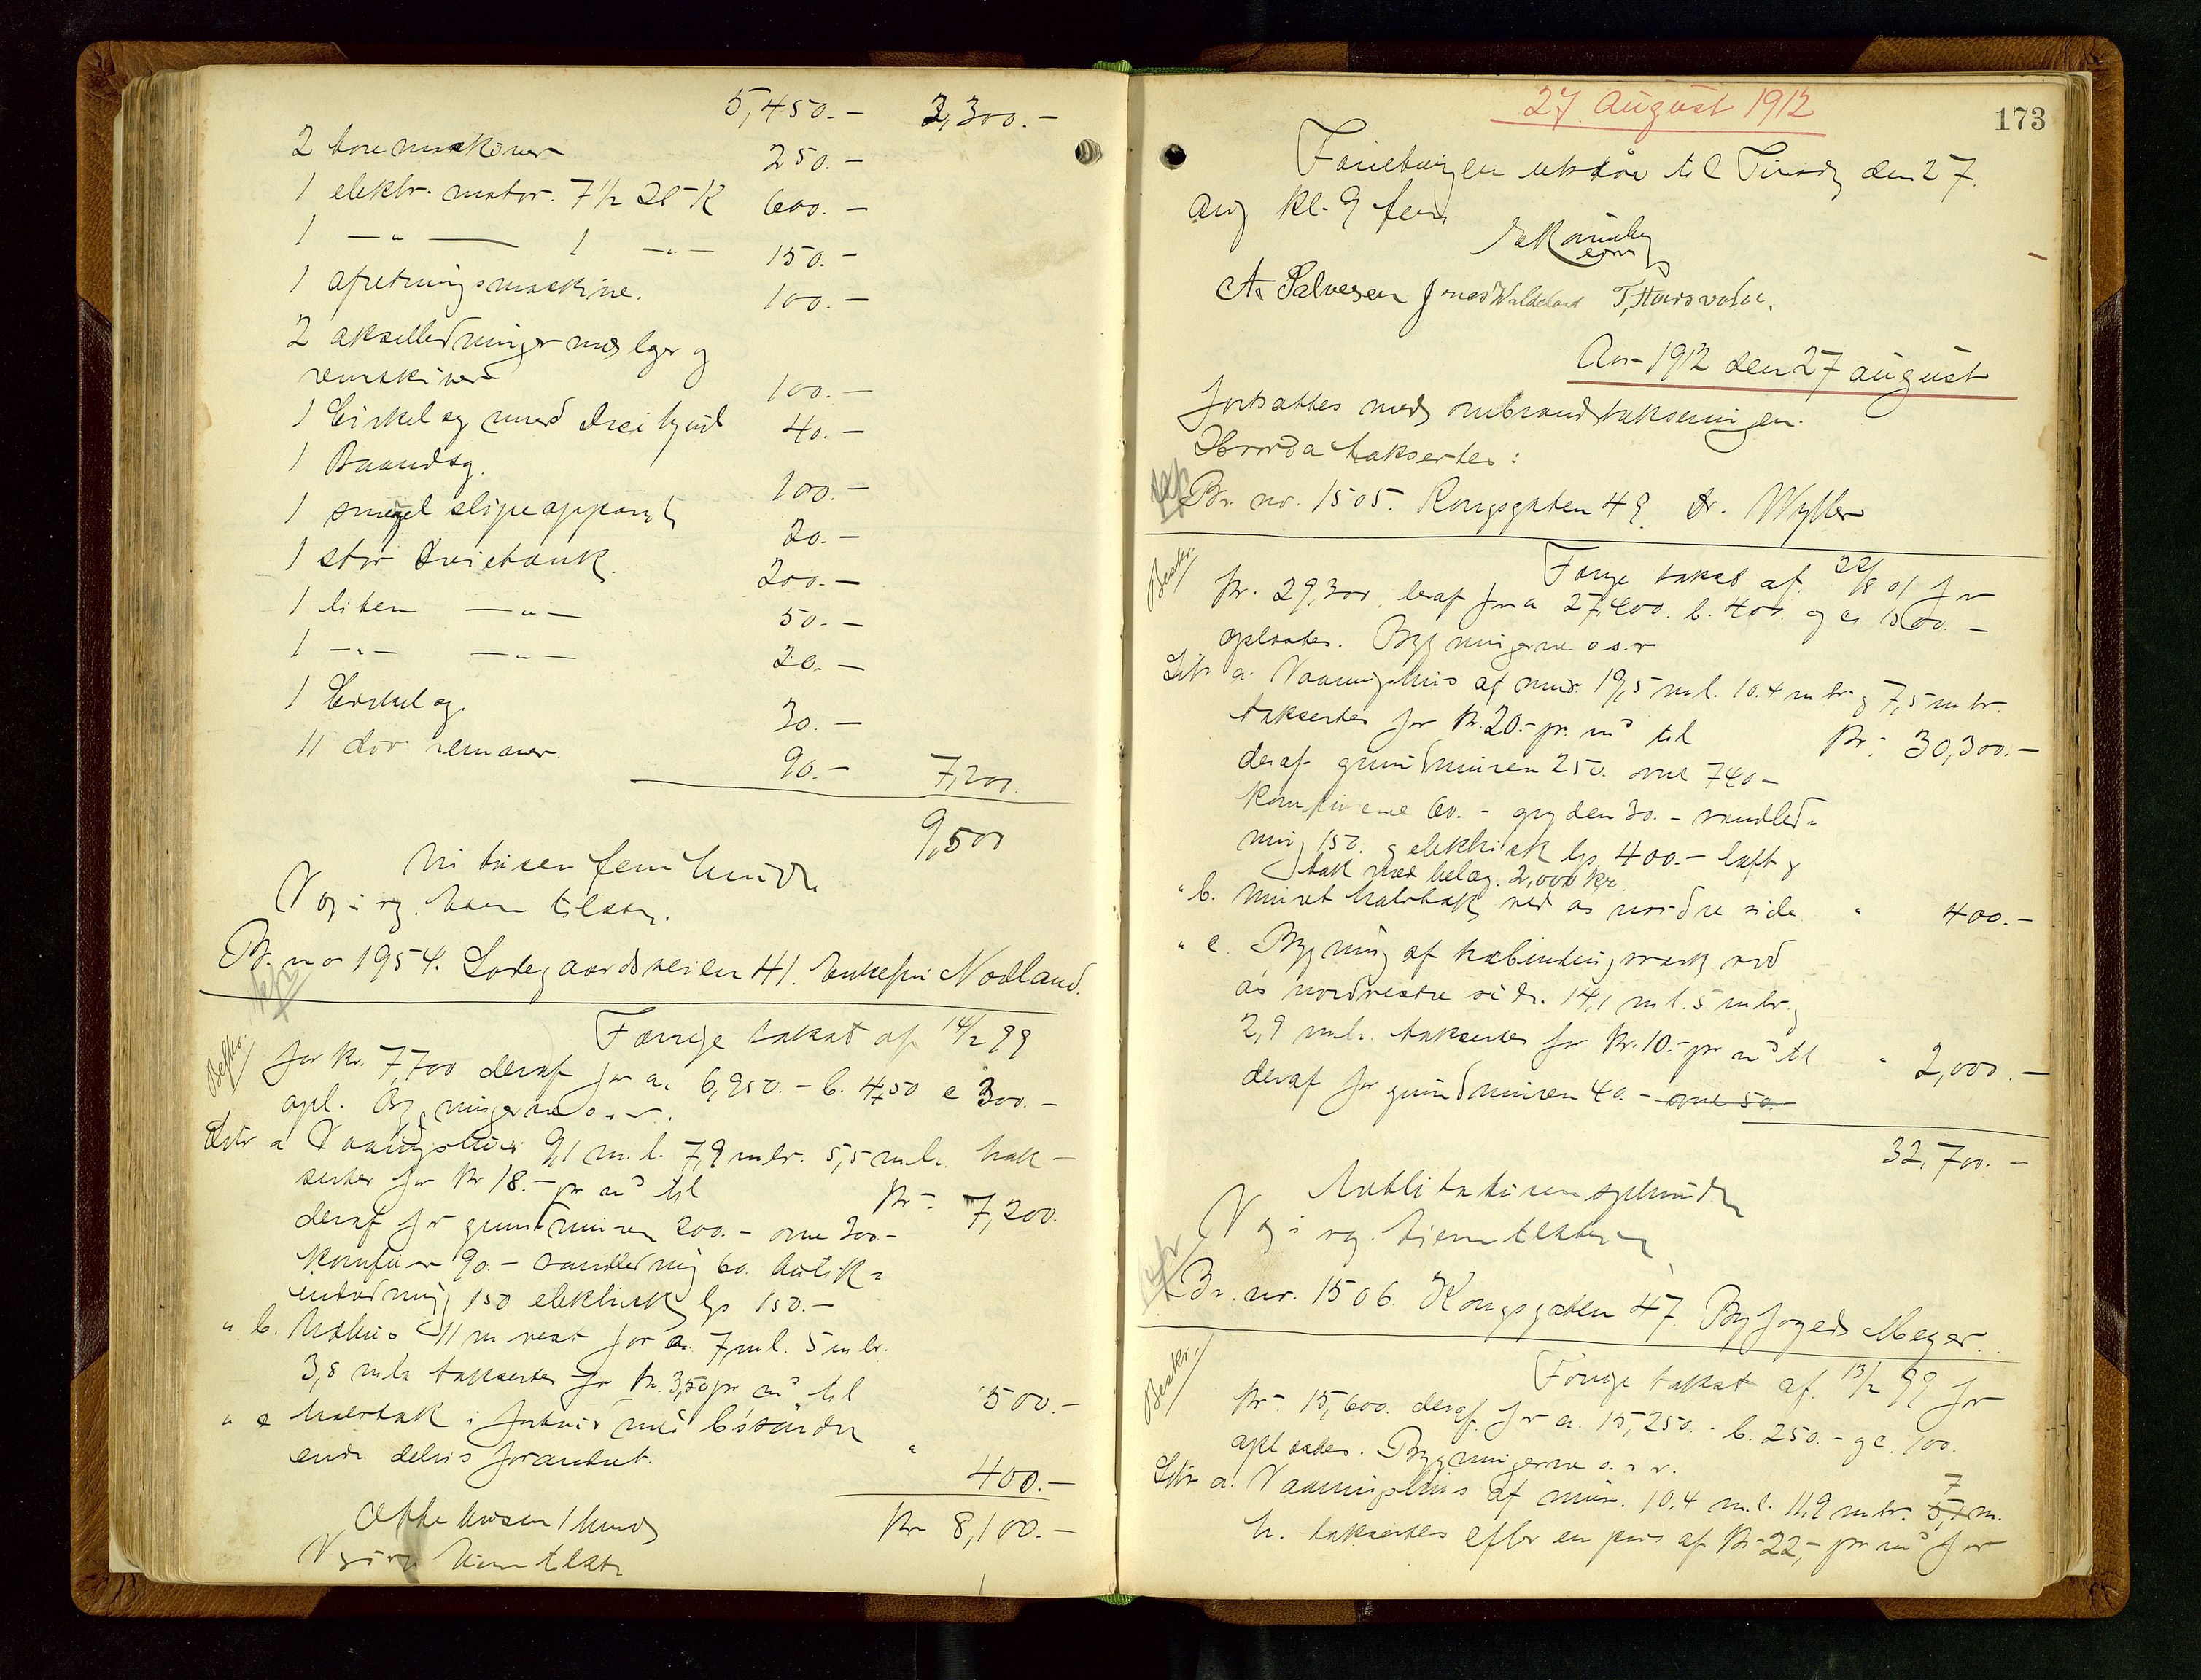 5,450.- 2,300.-
2 boremaskiner 250.-
1 elektr. motor. 7½ H K 600.-
1 -"- 1 -"- 150.-
1 afretningsmaskine. 100.-
2 akselledninger med lager og
remskiver 100.-
1 Cirkelsag med 40.-
1 Baandsag. 100.-
1 smergel slipeapparat 20.-
1 stor Dreiebænk. 200.-
1 liten -"- 50.-
1 -"- -"- 20.-
1 Cirkelsag. 30.-
11 remmer. 90.- 7,200.
9,500
Ni tusen fem hundre
Br. no 1954. Ladegaardsveien 41. Enkefru Nodland.
Beskr.
Forrige takst af 14/2 99
for kr. 7,700 deraf for a. 6,950.- b. 450 c 300.-
opl. Bygningerne o.s.v.
Litr a Vaaningshus 9,1 m.l. 7,9 mbr. 5,5 m.h. tak-
sertes for Kr 18.- pr m³ til Kr. 7,200.
deraf for grundmuren 200.- ovne 300.-
komfur 90.- vandledning 60. butik-
indredning 150 elektrisk lys 150.-
" b. 11 m vest for a. 7 m l. 5 m br.
3,8 m h takseertes for Kr. 3,50 pr m³ til 500.-
" c i forbind med b's søndre
ende delvis forandret. " 400.-
Otte tusen 1 hundre Kr 8,100.-
27 August 1912
173
Forretningen utsatte til Tirsdag den 27.
aug kl. 9 form
A. Salvesen Jonas
Aar 1912 den 27 august
fortsattes med ombrandtakseringen.
Hvorda taksertes:
Br. no. 1505. Kongsgaten 49. Dr. Wyller
Beskr.
Forrige takst af 22/8 01 for
Kr. 29,300, deraf for a 27,400. b. 400. og c 1500.-
oplæstes. Bygningerne o.s.v
Litr a. Vaaningshus af mur. 19,5 m l. 10.4 m br. og 7,5 m hr.
taksertes for Kr. 20.- pr. m³ til Kr. 30,300.-
deraf grundmuren 250. ovne 740-
komfurene 60.- gryden 30.- vandled-
ning 150. og elektrisk lys 400.- loft og
tak med belæg. 2,000 kr.
" b. Muret halvtak ved a's nordre side. " 400.-
" c. Bygning af træbindingsverk ved
a's nordvestre side. 14,1 m l. 5 m br. og
2,9 m h. taksertes for Kr. 10.- pr m³ til " 2,000.-
deraf for grundmuren 40.- ovne 50.-
32,700.-
Br. nr. 1506. Kongsgaten 47. Byfoged Meyer.
Beskr.
Forrige takst af 13/2 99 for
Kr. 15,600. deraf for a. 15,250.- b. 250.- og c. 100.
oplæstes. Bygningerne o.s.v.
Litr a. Vaaningshus af mur. 10,4 m l. 11,9 m br. 7 5,7 m.
h. taksertes efter en pris af Kr 22,- pr m³ for